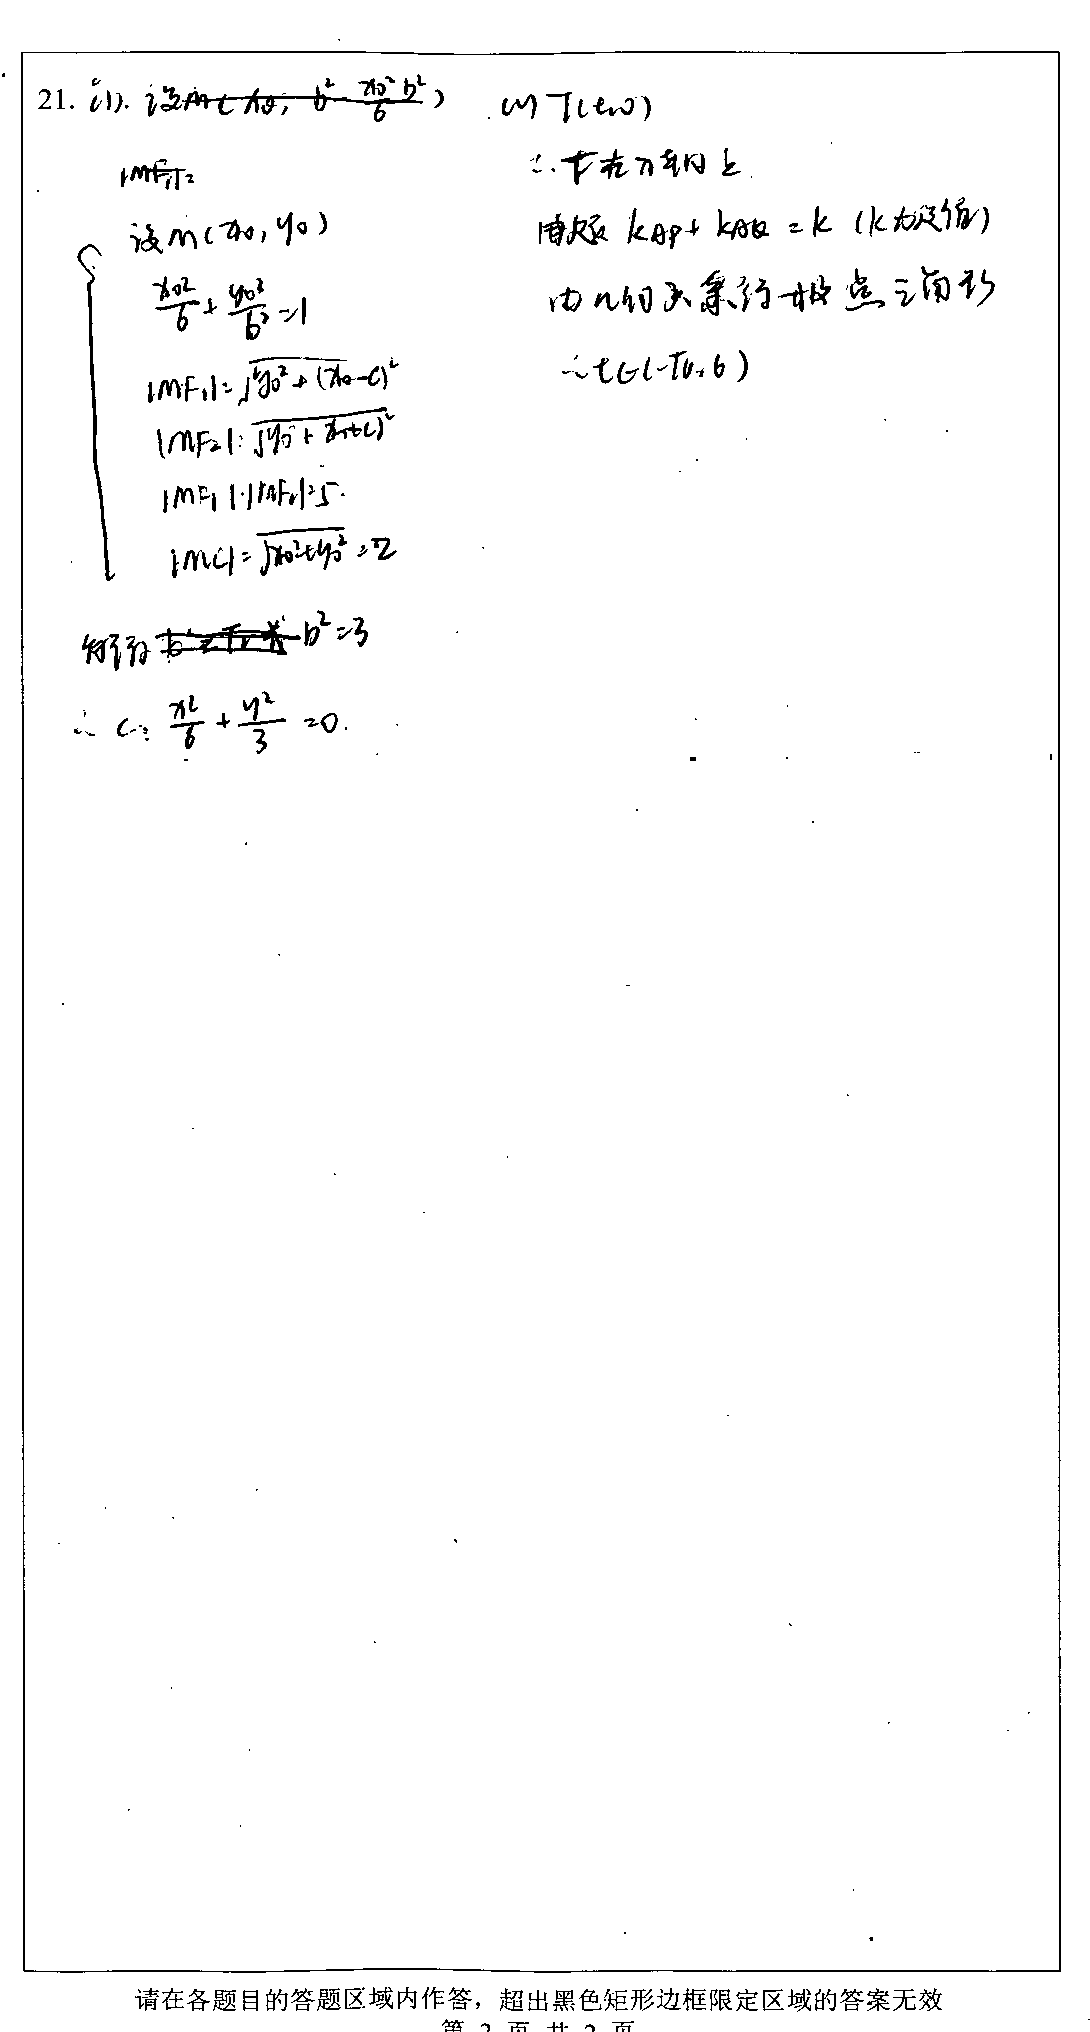 21. (1). 设M(x₀, b² - x₀²b²/6)
|MF₁|=
设M(x₀, y₀)
x₀²/6 + y₀²/b² = 1
|MF₁| = √y₀² + (x₀-c)²
|MF₂| = √y₀² + (x₀+c)²
|MF₁|·|MF₂|=5.
|MO| = √x₀²+y₀² = 2
解得 b²=3
∴ C: x²/6 + y²/3 = 0.
(2) T(t,0)
∴ T在x轴上
kAP + kAQ = k (k为定值)
由几何关系得 点三角形
∴ t∈(-√6, 6)
请在各题目的答题区域内作答，超出黑色矩形边框限定区域的答案无效
第 2 页 共 2 页